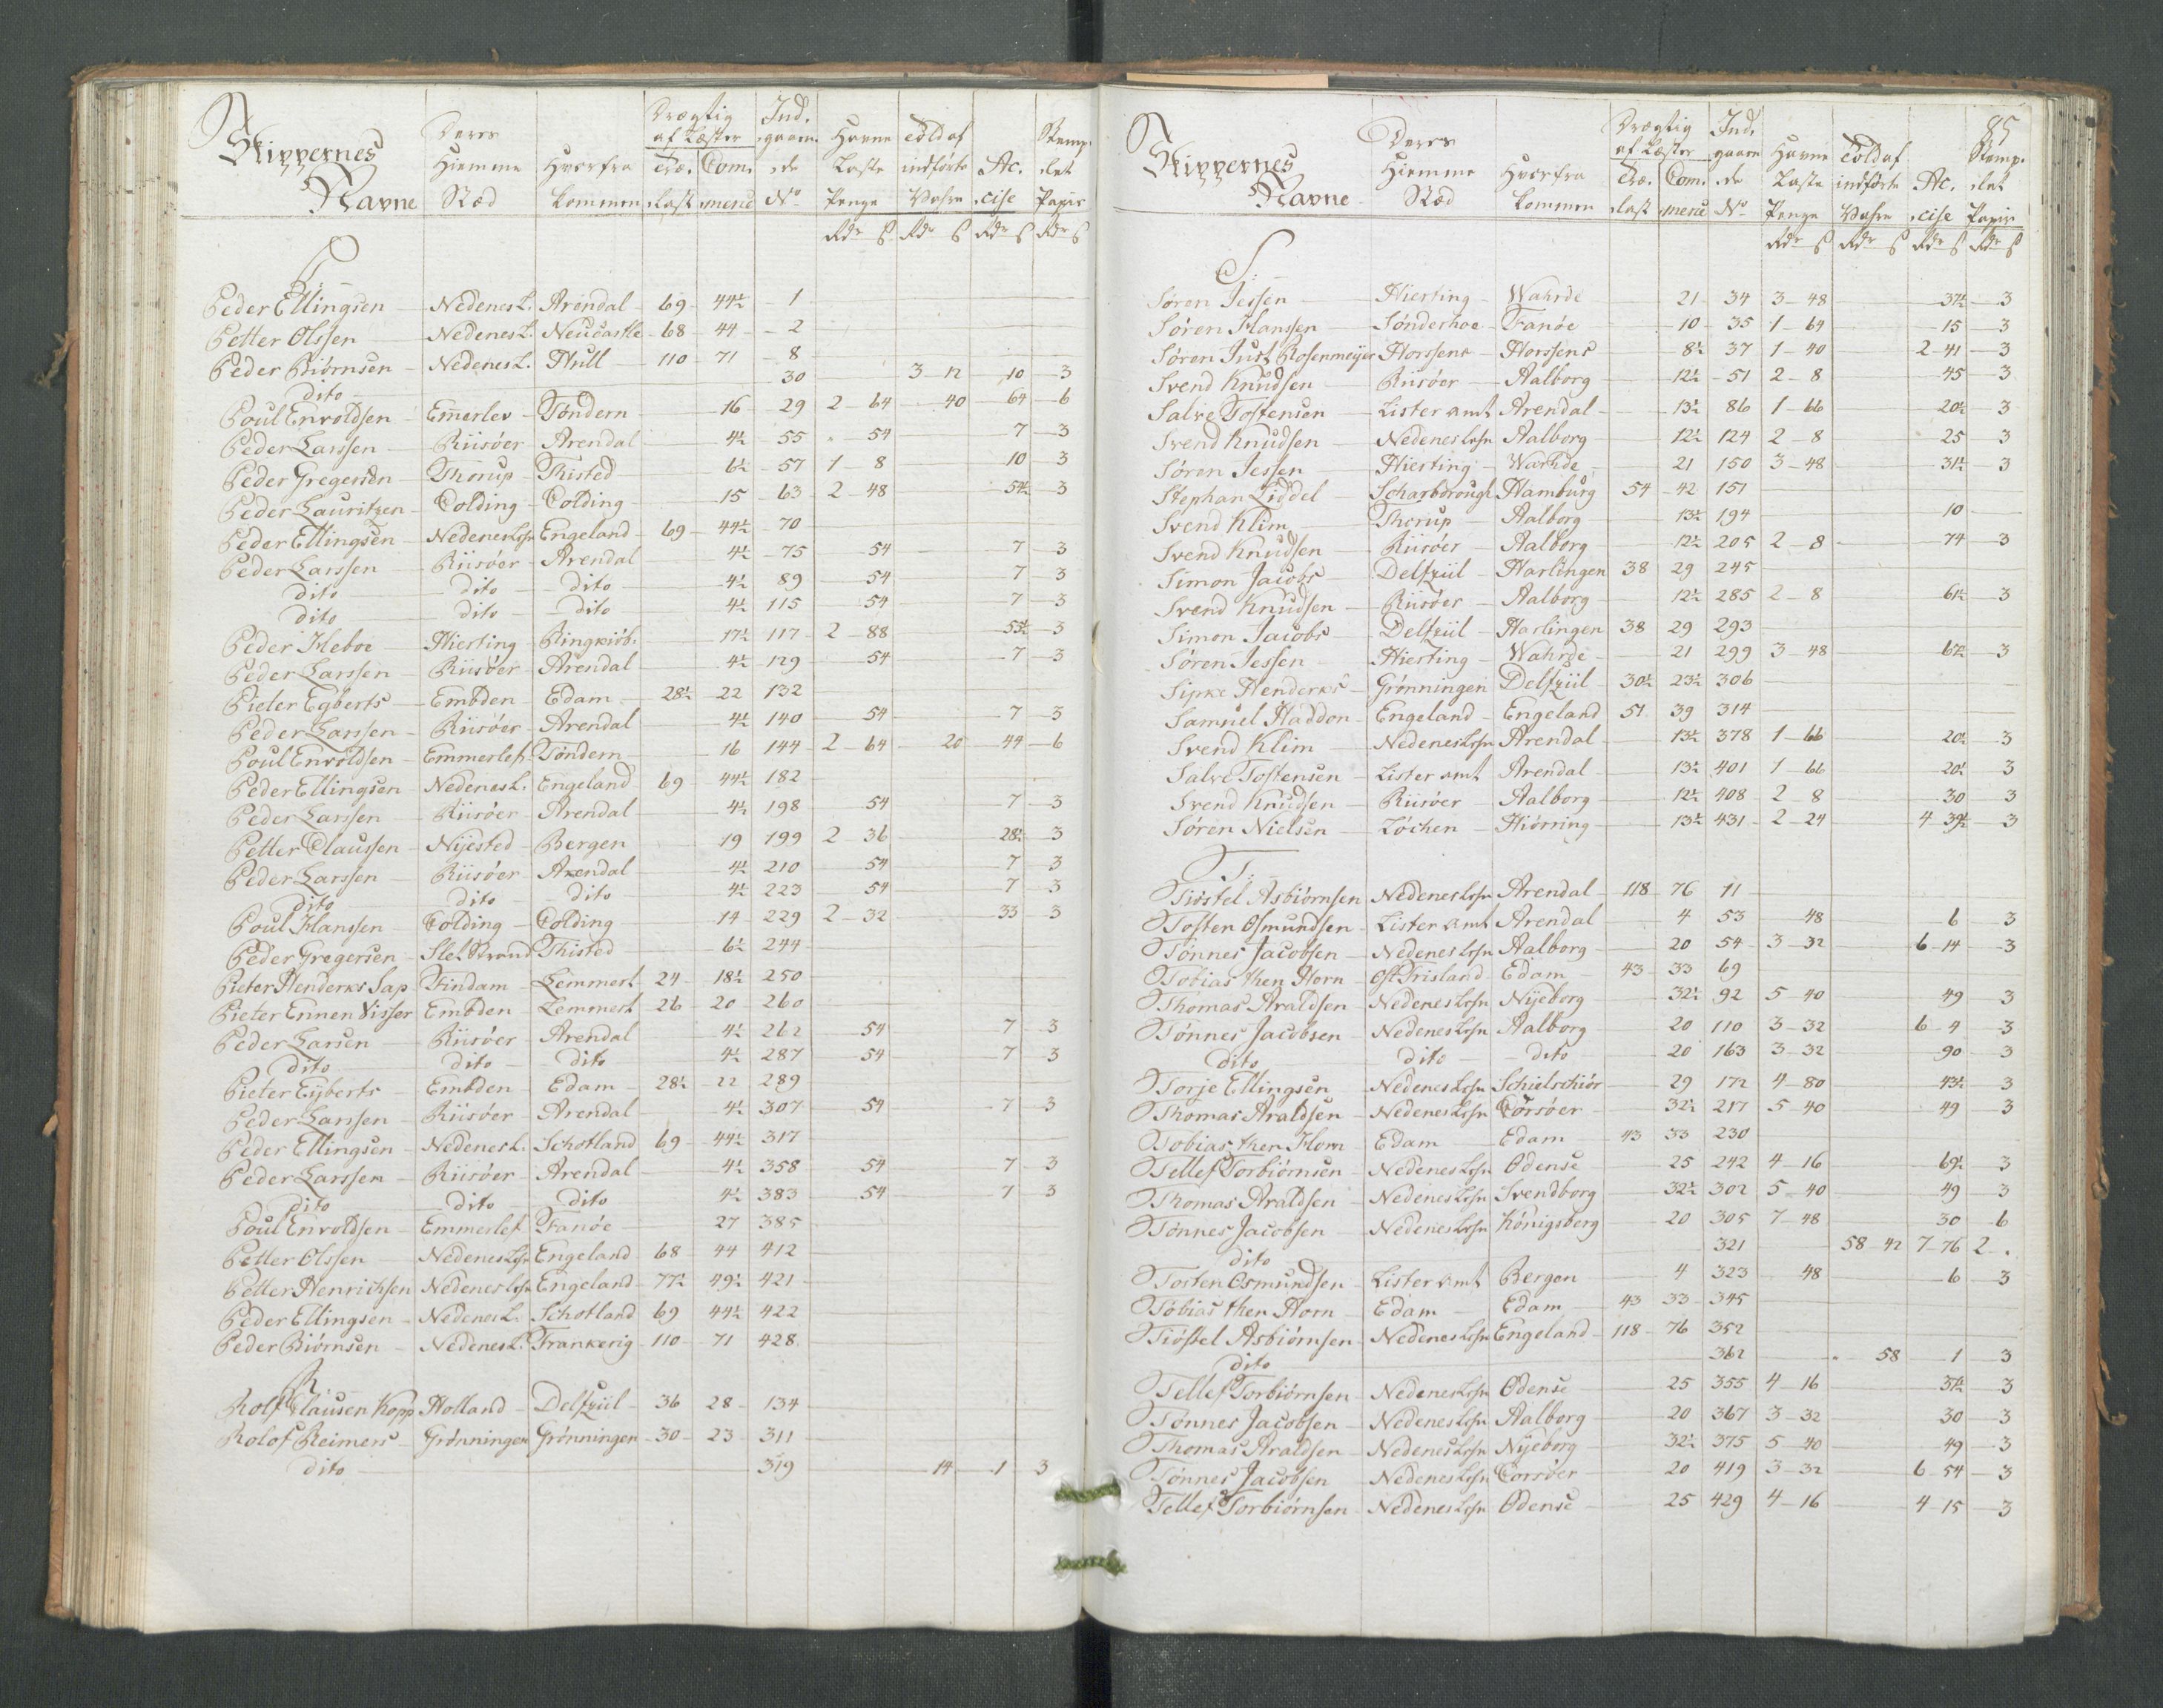 Skippernes Navne | Deres Hiemme Stæd | Hvorfra kommen | Drægtig af Læster Træ-last | Com-merce | Ind-gaaende No | Havne Laste Penge Rdr ß | Told af indførte Vahre Rdr ß | Ac-cise Rdr ß | Stemp-let Papir Rdr ß
P:
Peder Ellingsen Nedenes L. Arendal 69 44½ 1
Petter Olssen Nedenes L. Neucastle 68 44 2
Peder Biørnsen Nedenes L. Hull 110 71 8
dito 30 3-12 10 3
Poul Envoldsen Emerlev Tøndern 16 29 2-64 40 64 6
Peder Larssen Riisøer Arendal 4½ 55 54 7 3
Peder Gregersen Thorup Thisted 6½ 57 1-8 10 3
Peder Lauritzen Colding Colding 15 63 2-48 54½ 3
Peder Ellingsen Nedenes Lehn Engeland 69 44½ 70
Peder Larssen Riisøer Arendal 4½ 75 54 7 3
dito dito dito 4½ 89 54 7 3
dito dito dito 4½ 115 54 7 3
Peder Heboe Hierting Ringkiøb. 17½ 117 2-88 53½ 3
Peder Larssen Riisøer Arendal 4½ 129 54 7 3
Pieter Egberts Embden Edam 28½ 22 132
Peder Larssen Riisøer Arendal 4½ 140 54 7 3
Poul Envoldsen Emmerlef Tøndern 16 144 2-64 20 44 6
Peder Ellingsen Nedenes L. Engeland 69 44½ 182
Peder Larssen Riisøer Arendal 4½ 198 54 7 3
Petter Claussen Nijested Bergen 19 199 2-36 28½ 3
Peder Larssen Riisøer Arendal 4½ 210 54 7 3
dito dito dito 4½ 223 54 7 3
Poul Hanssen Colding Colding 14 229 2-32 33 3
Peder Gregersen Slet Strand Thisted 6½ 244
Pieter Henderks Sap Findam Lemmert 24 18½ 250
Pieter Ennen Visser Embden Lemmert 26 20 260
Peder Larsen Riisøer Arendal 4½ 262 54 7 3
dito dito dito 4½ 287 54 7 3
Pieter Eijberts Embden Edam 28½ 22 289
Peder Larssen Riisøer Arendal 4½ 307 54 7 3
Peder Ellingsen Nedenes L. Schotland 69 44½ 317
Peder Larssen Riisøer Arendal 4½ 358 54 7 3
dito dito dito 4½ 383 54 7 3
Poul Envoldsen Emmerlef Fanøe 27 385
Petter Olssen Nedenes Lehn Engeland 68 44 412
Petter Henrichsen Nedenes Lehn Engeland 77½ 49½ 421
Peder Ellingsen Nedenes L. Schotland 69 44½ 422
Peder Biørnsen Nedenes L. Frankerig 110 71 428
R
Rolf Clausen Kopp Holland Delfziil 36 28 134
Rolof Reimers Grønningen Grønningen 30 23 311
dito 319 14 1 3
85
Skippernes Navne | Deres Hiemme Stæd | Hvorfra kommen | Drægtig af Læster Træ-last | Com-merce | Ind-gaaende No | Havne Laste Penge Rdr ß | Told af indførte Vahre Rdr ß | Ac-cise Rdr ß | Stemp-let Papir Rdr ß
S:
Søren Jessen Hierting Wahrde 21 34 3-48 37½ 3
Søren Hanssen Sønderhoe Fanøe 10 35 1-64 15 3
Søren Just Rosenmeijer Horssens Horssens 8½ 37 1-40 2-41 3
Svend Knudsen Riisøer Aalborg 12½ 51 2-8 45 3
Salve Tostensen Lister amt Arendal 13½ 86 1-66 20½ 3
Svend Knudsen Nedenes Lehn Aalborg 12½ 124 2-8 25 3
Søren Jessen Hierting Warhde 21 150 3-48 31½ 3
Stephan Liddel Scharbdrough Hamburg 54 42 151
Svend Klim Thorup Aalborg 13½ 194 10
Svend Knudsen Riisøer Aalborg 12½ 205 2-8 74 3
Simon Jacobs Delfziil Harlingen 38 29 245
Svend Knudsen Riisøer Aalborg 12½ 285 2-8 61½ 3
Simon Jacobs Delfziil Harlingen 38 29 293
Søren Jessen Hierting Wahrde 21 299 3-48 67½ 3
Sipke Henderks Grønningen Delfziil 30½ 23½ 306
Samuel Haddon Engeland Engeland 51 39 314
Svend Klim Nedenes Lehn Arendal 13½ 378 1-66 20½ 3
Salve Tostensen Lister amt Arendal 13½ 401 1-66 20½ 3
Svend Knudsen Riisøer Aalborg 12½ 408 2-8 30 3
Søren Nielsen Løchen Hiørring 13½ 431 2-24 4-39½ 3
T:
Tiøstel Asbiørnsen Nedenes Lehn Arendal 118 76 11
Tosten Osmundsen Lister amt Arendal 4 53 48 6 3
Tønnes Jacobsen Nedenes Lehn Aalborg 20 54 3-32 6-14 3
Tobias then Horn Ost Frisland Edam 43 33 69
Thomas Araldsen Nedenes Lehn Nijeborg 32½ 92 5-40 49 3
Tønnes Jacobsen Nedenes Lehn Aalborg 20 110 3-32 6-4 3
dito dito dito 20 163 3-32 90 3
Torje Ellingsen Nedenes Lehn Schielschiør 29 172 4-80 43½ 3
Thomas Araldsen Nedenes Lehn Corsøer 32½ 217 5-40 49 3
Tobias then Horn Edam Edam 43 33 230
Tellef Torbiørnsen Nedenes Lehn Odense 25 242 4-16 69½ 3
Thomas Araldsen Nedenes Lehn Svendborg 32½ 302 5-40 49 3
Tønnes Jacobsen Nedenes Lehn Kønigsberg 20 305 7-48 30 6
dito 321 58-42 7-76 2 .
Tosten Osmundsen Lister amt Bergen 4 323 48 6 3
Tobias then Horn Edam Edam 43 33 345
Tiøstel Asbiørnsen Nedenes Lehn Engeland 118 76 352
dito 362 58 1 3
Tellef Torbiørnsen Nedenes Lehn Odense 25 355 4-16 3
Tønnes Jacobsen Nedenes Lehn Aalborg 20 367 3-32 30 3
Thomas Araldsen Nedenes Lehn Nijeborg 32½ 375 5-40 49 3
Tønnes Jacobsen Nedenes Lehn Corsøer 20 419 3-32 6-54 3
Tellef Torbiørnsen Nedenes Lehn Odense 25 429 4-16 4-15 3